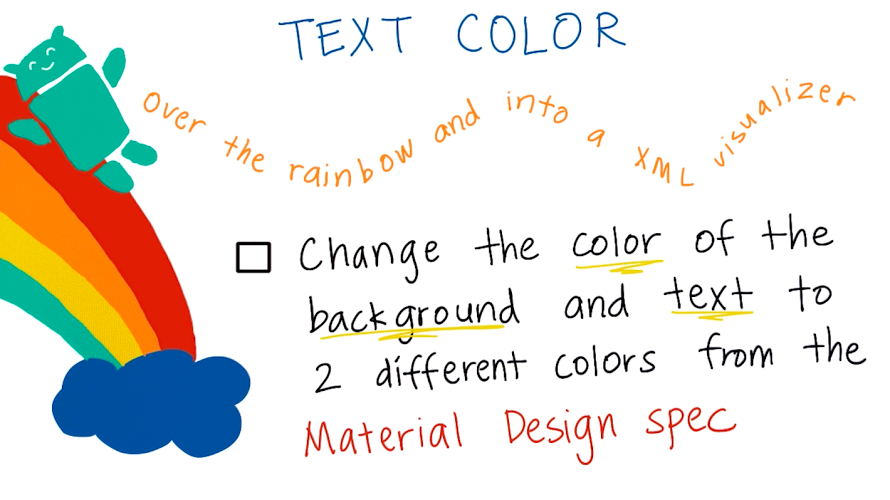 TEXT COLOR
over the rainbow and into a XML visualizer
Change the color of the
background and text to
2 different colors from the
Material Design spec